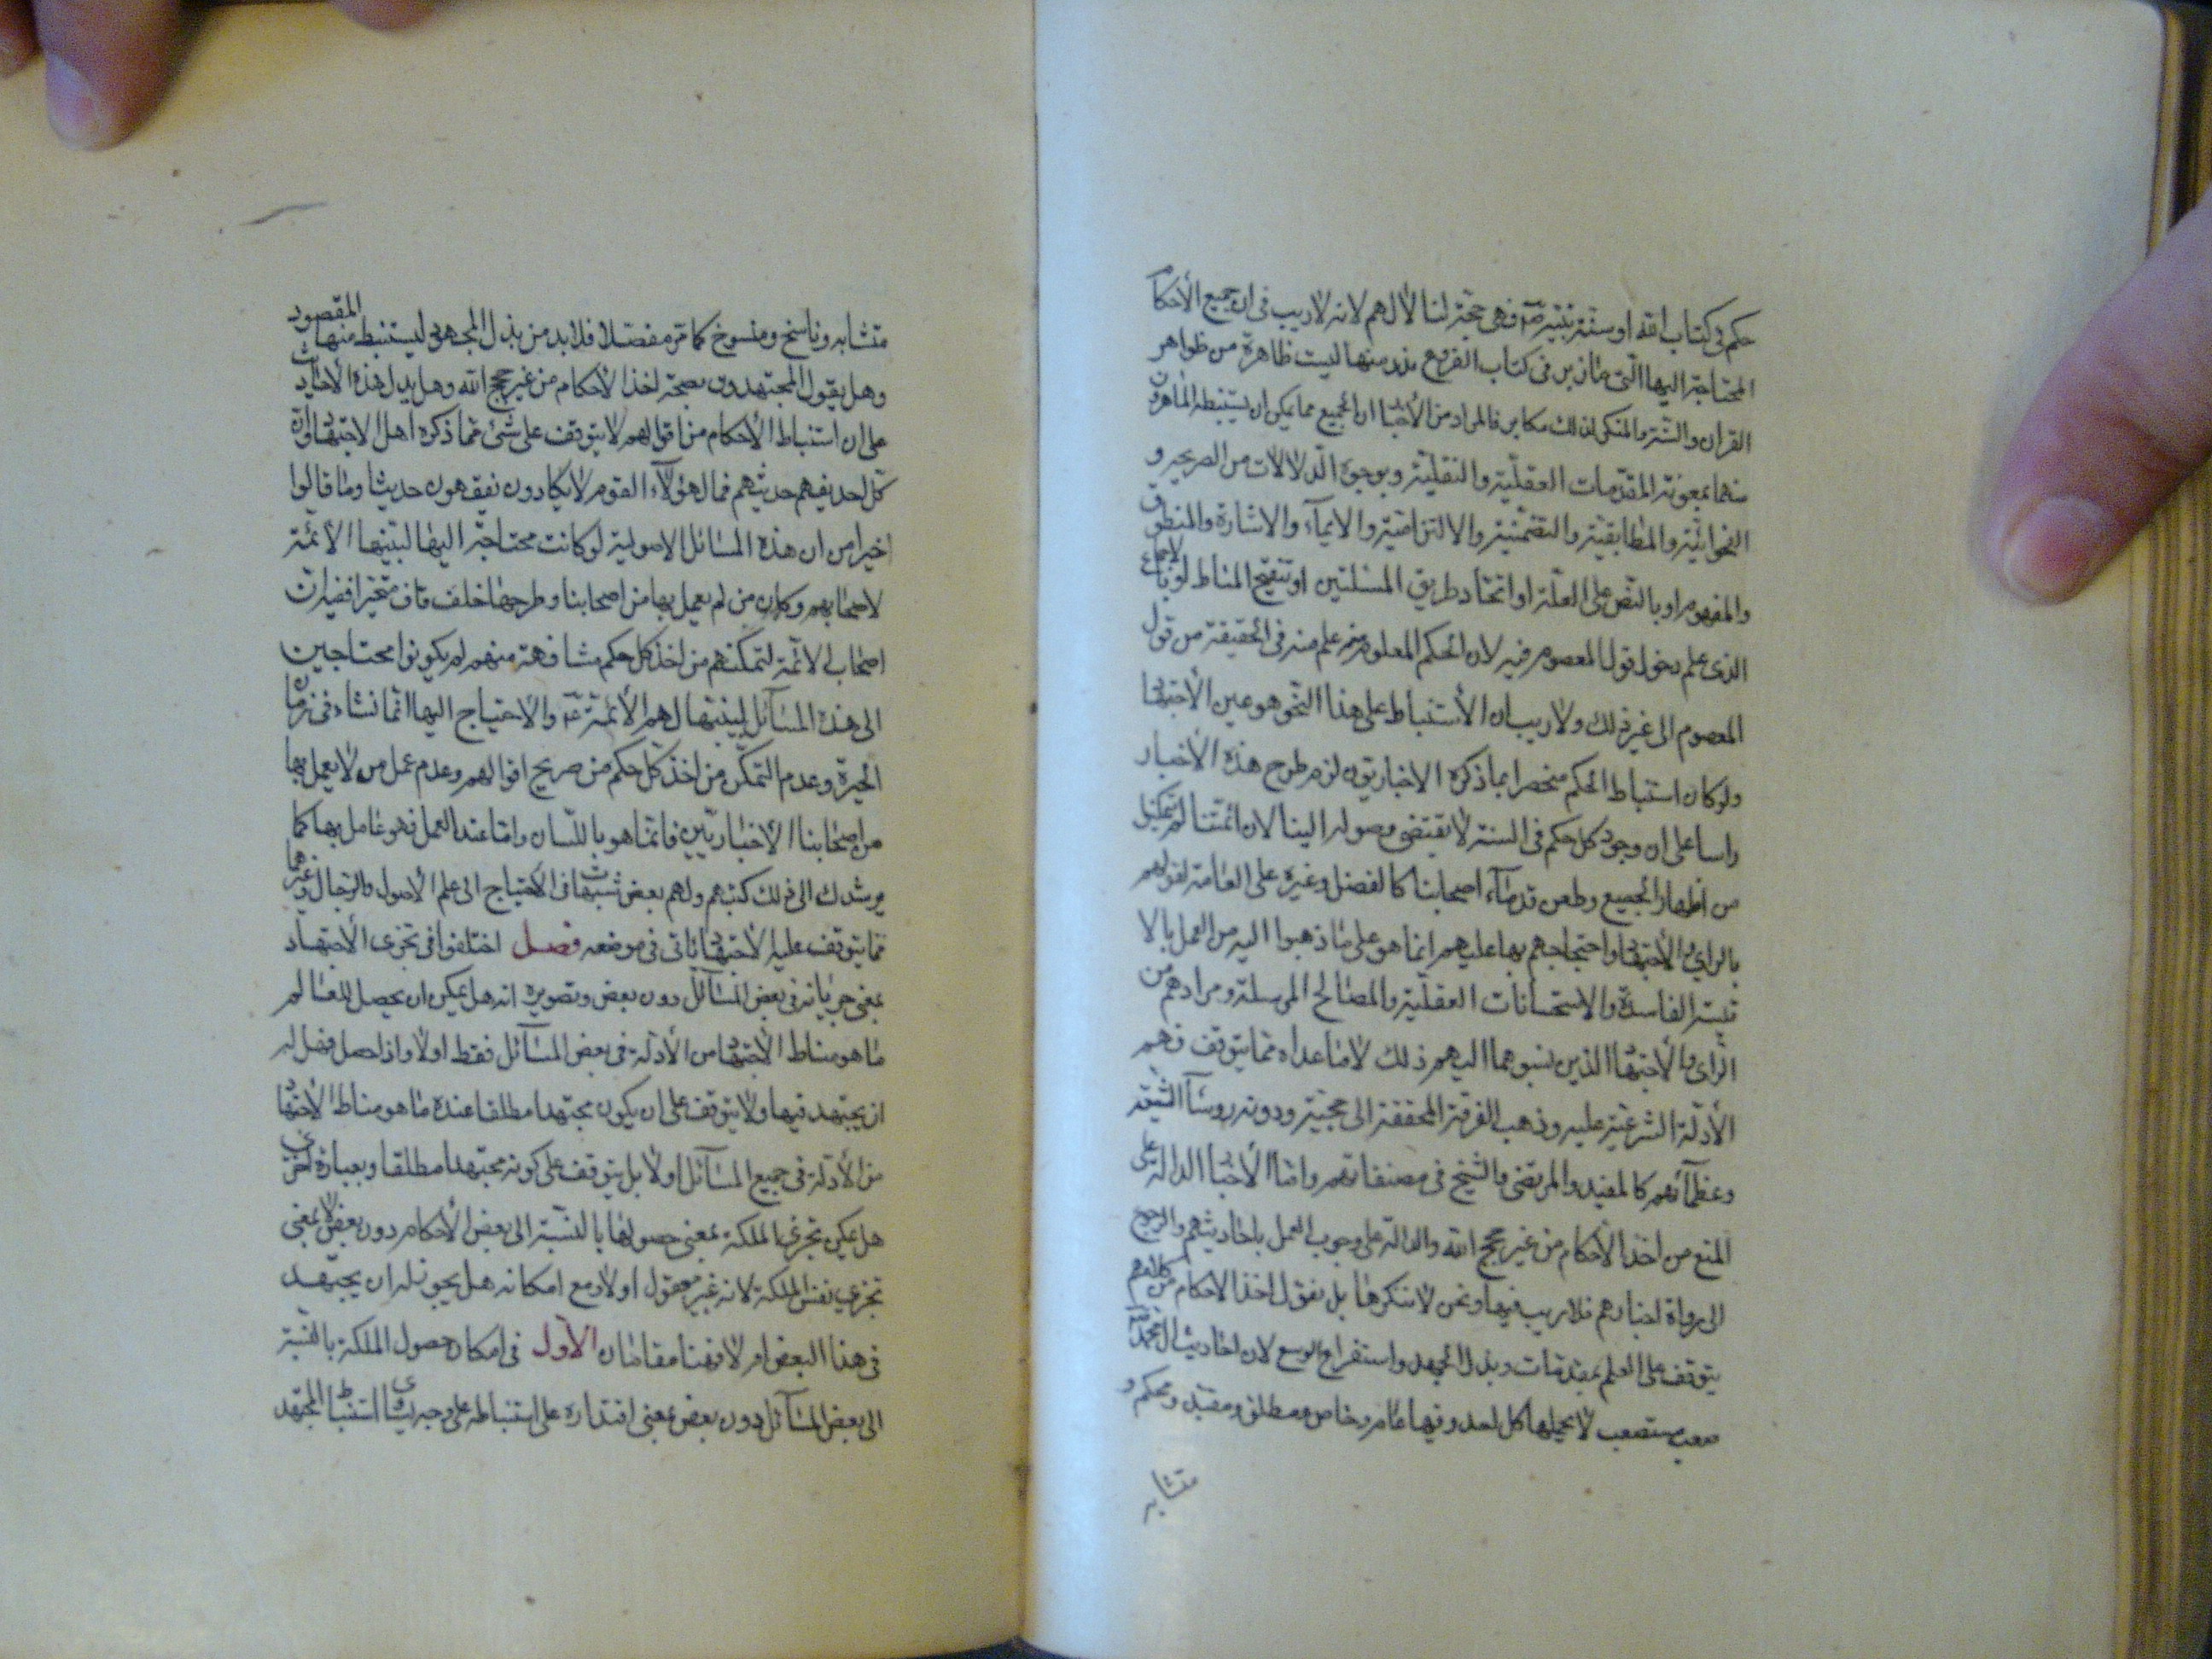 حكم فى كتاب الله او سنة نبيه ص فهى حجة لنا لا لهم لانه لا ريب فى ان جميع الأحكام
المحتاجة اليها التى فى كتاب الفروع منها ليست ظاهرة من ظواهر
القران والسنة والمنكر لذلك مكابر فالمراد من الأخبار ان الجميع مما يمكن ان يستنبطه الماهرون
منهما بمعونة المقدمات العقلية والنقلية وبوجوه الدلالات من الصريحة و
الفحوائية والمطابقية والتضمنية والالتزامية والايماء والاشارة والمنطوق
والمفهوم او بالنص على العلة او اتحاد طريق المسئلتين او تنقيح المناط او بالاجماع
الذى علم دخول قول المعصوم فيه لان الحكم المعلوم منه علم منه فى الحقيقة من قول
المعصوم الى غير ذلك ولا ريب ان الأستنباط على هذا النحو هو عين الأجتهاد
ولو كان استنباط الحكم منحصرا بما ذكره الاخباريون لزم طرح هذه الأخبار
راسا على ان وجود كل حكم فى السنة لا يقتضى وصوله الينا لان ائمتنا لم تمكنهم
من اظهار الجميع وطعن قدماء اصحابنا كالفضل وغيره على العامة لقولهم
بالراى والأجتهاد واحتجاجهم بها عليهم انما هو على ما ذهبوا اليه من العمل بالا
قيسة الفاسدة والاستحسانات العقلية والمصالح المرسلة ومرادهم من
الراى والأجتهاد الذين نسبوهما اليهم ذلك لا ما عداه مما يتوقف فهم
الأدلة الشرعية عليه وذهب الفرقة المحققة الى حجيته ودونه روساء الشيعة
وعظمائهم كالمفيد والمرتضى والشيخ فى مصنفاتهم واما الأخبار الدالة على
المنع من اخذ الأحكام من غير حجج الله والدالة على وجوب العمل باحاديثهم والرجوع
الى رواة اخبارهم فلا ريب فيها ونحن لا ننكرها بل نقول اخذ الاحكام من كلامهم
يتوقف على العلم بمقدمات وبذل الجهد واستفراغ الوسع لان احاديث ال محمد ص
صعب مستصعب لا يحملها كل احد وفيها عام وخاص ومطلق ومقيد ومحكم و
متشابه
متشابه وناسخ ومنسوخ كما مر مفصلا فلابد من بذل المجهود ليستنبط منها المقصود
وهل يقول المجتهدون بصحة اخذ الأحكام من غير حجج الله وهل يدل هذه الأحاديث
على ان استنباط الأحكام من اقوالهم لا يتوقف على شئ مما ذكره اهل الاجتهاد وان
كل احد يفهم حديثهم فما لهؤلاء القوم لا يكادون يفقهون حديثا وما قالوا
اخيرا من ان هذه المسائل الاصولية لو كانت محتاجة اليها لبينها الأئمة
لاصحابهم وكان من لم يعمل بها من اصحابنا وطرحها خلف قاف متحيرا ففيه ان
اصحاب الائمة لتمكنهم من اخذ كل حكم مشافهة منهم لم يكونوا محتاجين
الى هذه المسائل ليبينها لهم الأئمة ع والاحتياج اليها انما نشاء فى زمان
الحيرة وعدم التمكن من اخذ كل حكم من صريح اقوالهم وعدم عمل من لا يعمل بها
من اصحابنا الأخباريين فانما هو باللسان واما عند العمل فهو عامل بها كما
يرشدك الى ذلك كتبهم ولهم بعض شبهات فى الأحتياج الى علم الأصول والرجال وغيرهما
مما يتوقف عليه الأجتهاد ياتى فى موضعه فصل اختلفوا فى تجزى الأجتهاد
بمعنى جريانه فى بعض المسائل دون بعض وتصويره انه هل يمكن ان يحصل للعالم
ما هو مناط الأجتهاد من الأدلة فى بعض المسائل فقط اولا واذا حصل فهل له
ان يجتهد فيها ولا يتوقف على ان يكون مجتهدا مطلقا عنده ما هو مناط الأجتهاد
من الأدلة فى جميع المسائل اولا بل يتوقف على كونه مجتهدا مطلقا وبعبارة اخرى
هل يمكن تجزى الملكة بمعنى حصولها بالنسبة الى بعض الأحكام دون بعض لا بمعنى
تجزى نفس الملكة لانه غير معقول اولا ومع امكانه هل يجوز له ان يجتهد
فى هذا البعض ام لا فهنا مقامان الأول فى امكان حصول الملكة بالنسبة
الى بعض المسائل دون بعض بمعنى اقتداره على استنباطه على وجه يساوى استنباط المجتهد